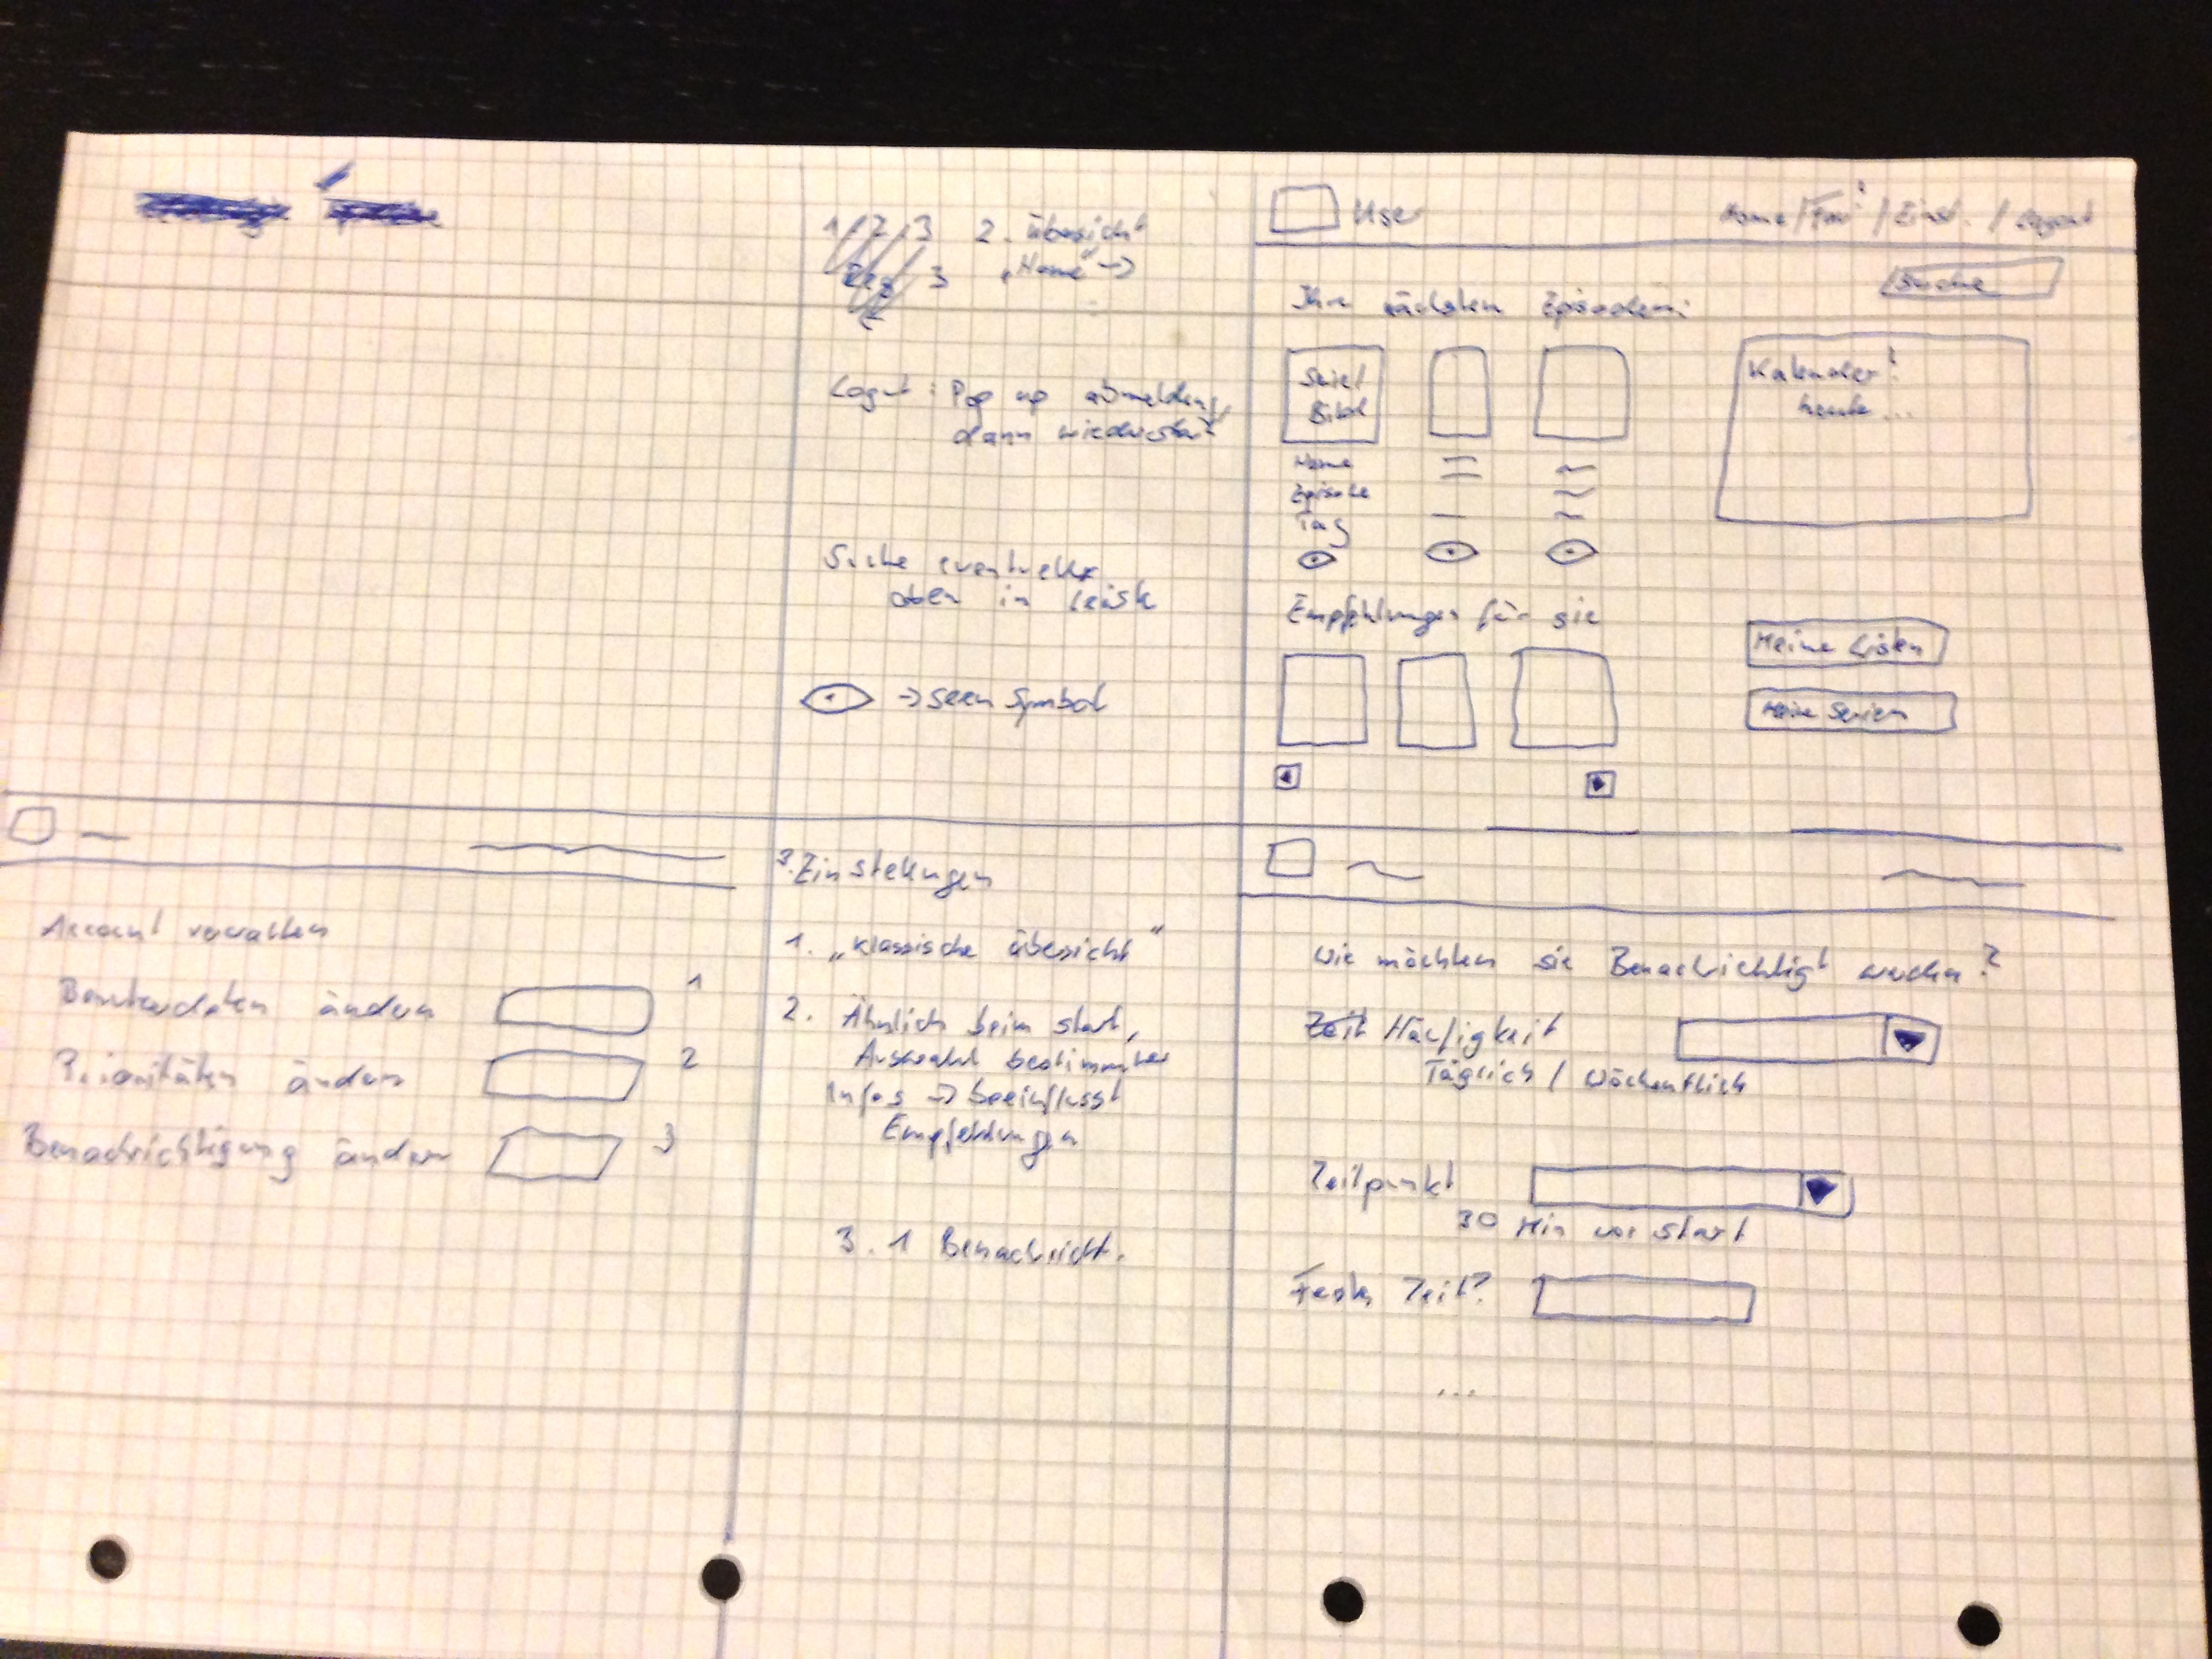 2. Übersicht
"Home" ->
Logout: Pop up abmelden,
dann wieder
Suche eventuell
oben in Leiste
-> seen Symbol
User
Home / Fav / Einst. / Logout
Suche
Ihre nächsten Episoden:
Bild
Kalender!
heute...
Name
Episode
Tag
Empfehlungen für sie
Meine Listen
Meine Serien
Account verwalten
Benutzerdaten ändern 1
Prioritäten ändern 2
Benachrichtigung ändern 3
3. Einstellungen
1. „klassische übersicht"
2. Ähnlich beim start,
Auswahl bestimmter
Infos -> beeinflusst
Empfehlungen
3. 1 Benachricht.
Wie möchten sie Benachrichtigt werden?
Zeit Häufigkeit
Täglich / Wöchentlich
Zeitpunkt
30 Min vor start
Feste Zeit?
...